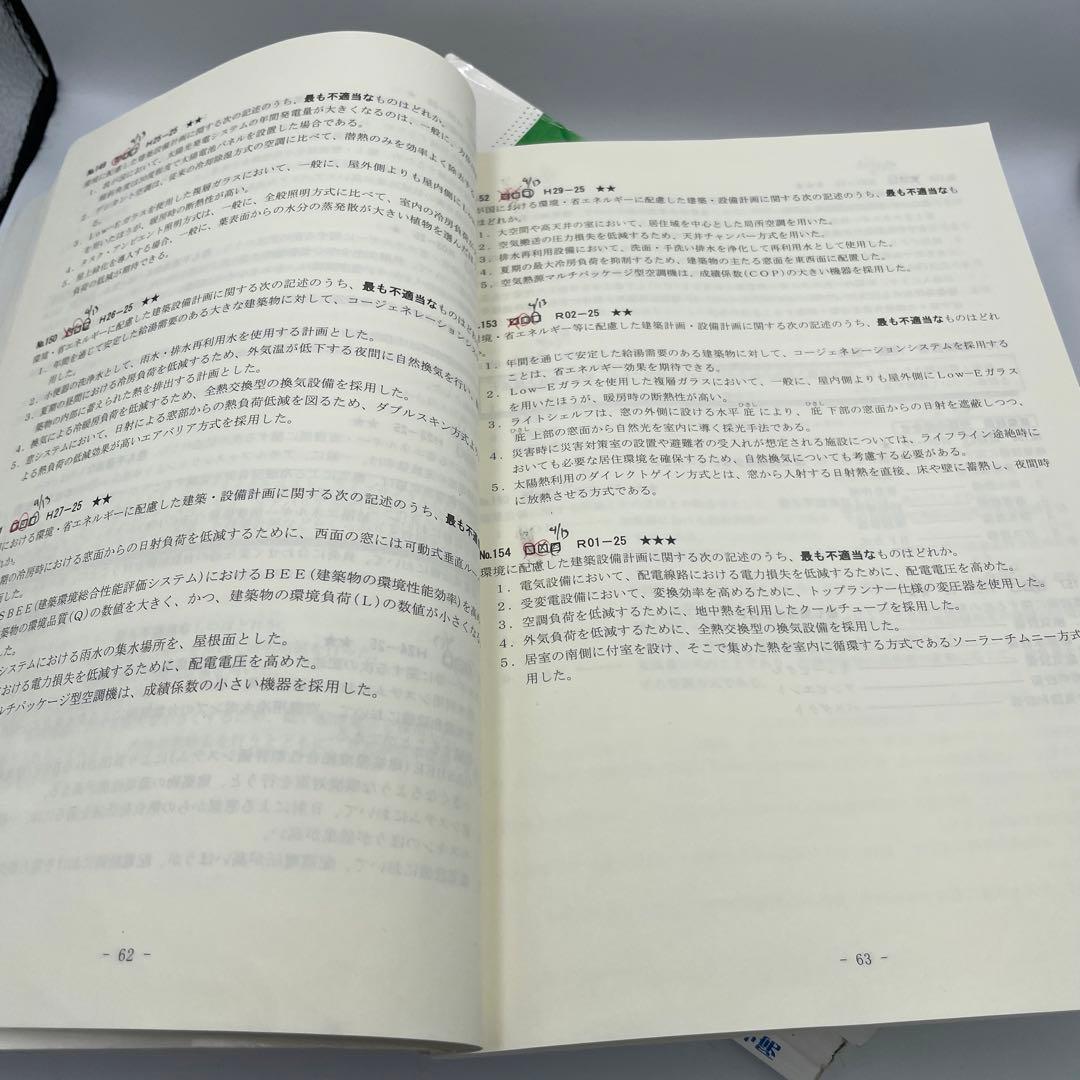 H25-25 ★★
環境に配慮した建築設備計画に関する次の記述のうち、最も不適当なものはどれか。
1．我が国において、太陽光発電システムの年間発電量が大きくなるのは、一般に、
傾斜角度は30度程度で太陽電池パネルを設置した場合である。
2．デシカント空調は、従来の冷却除湿方式の空調に比べて、潜熱のみを効率よく除去
3．Low-Eガラスを使用した複層ガラスにおいて、一般に、屋外側よりも屋内側に
を用いたほうが、暖房時の断熱性が高い。
4．タスク・アンビエント照明方式は、一般に、全般照明方式に比べて、室内の冷房負荷
5．屋上緑化を導入する場合、一般に、葉表面からの水分の蒸発散が大きい植物を選んだ
負荷の低減が期待できる。
4/13
No.150 H26-25 ★★
環境・省エネルギーに配慮した建築設備計画に関する次の記述のうち、最も不適当なものはど
1．年間を通じて安定した給湯需要のある大きな建築物に対して、コージェネレーションシス
用した。
2．小便器の洗浄水として、雨水・排水再利用水を使用する計画とした。
3．夏期の昼間における冷房負荷を低減するため、外気温が低下する夜間に自然換気を行い、
築物の内部に蓄えられた熱を排出する計画とした。
4．換気による冷暖房負荷を低減するため、全熱交換型の換気設備を採用した。
5．窓システムにおいて、日射による窓部からの熱負荷低減を図るため、ダブルスキン方式よ
よる熱負荷の低減効果が高いエアバリア方式を採用した。
4/13
H27-25 ★★
における環境・省エネルギーに配慮した建築・設備計画に関する次の記述のうち、最も不適
れか。
期の冷房時における窓面からの日射負荷を低減するために、西面の窓には可動式垂直ルー
SBEE(建築環境総合性能評価システム)におけるBEE(建築物の環境性能効率)を高め
築物の環境品質(Q)の数値を大きく、かつ、建築物の環境負荷(L)の数値が小さくな
した。
システムにおける雨水の集水場所を、屋根面とした。
おける電力損失を低減するために、配電電圧を高めた。
ルチパッケージ型空調機は、成績係数の小さい機器を採用した。
- 62 -
4/13
52 H29-25 ★★
が国における環境・省エネルギーに配慮した建築・設備計画に関する次の記述のうち、最も不適当なも
はどれか。
1．大空間や高天井の室において、居住域を中心とした局所空調を用いた。
2．空気搬送の圧力損失を低減するため、天井チャンバー方式を用いた。
3．排水再利用設備において、洗面・手洗い排水を浄化して再利用水として使用した。
4．夏期の最大冷房負荷を抑制するため、建築物の主たる窓面を東西面に配置した。
5．空気熱源マルチパッケージ型空調機は、成績係数(COP)の大きい機器を採用した。
4/13
.153 R02-25 ★★
環境・省エネルギー等に配慮した建築計画・設備計画に関する次の記述のうち、最も不適当なものはどれ
か。
1．年間を通じて安定した給湯需要のある建築物に対して、コージェネレーションシステムを採用する
ことは、省エネルギー効果を期待できる。
2．Low-Eガラスを使用した複層ガラスにおいて、一般に、屋内側よりも屋外側にLow-Eガラス
を用いたほうが、暖房時の断熱性が高い。
3．ライトシェルフは、窓の外側に設ける水平庇により、庇下部の窓面からの日射を遮蔽しつつ、
庇上部の窓面から自然光を室内に導く採光手法である。
4．災害時に災害対策室の設置や避難者の受入れが想定される施設については、ライフライン途絶時に
おいても必要な居住環境を確保するため、自然換気についても考慮する必要がある。
5．太陽熱利用のダイレクトゲイン方式とは、窓から入射する日射熱を直接、床や壁に蓄熱し、夜間時
に放熱させる方式である。
4/13
No.154 R01-25 ★★★
環境に配慮した建築設備計画に関する次の記述のうち、最も不適当なものはどれか。
1．電気設備において、配電線路における電力損失を低減するために、配電電圧を高めた。
2．受変電設備において、変換効率を高めるために、トップランナー仕様の変圧器を使用した。
3．空調負荷を低減するために、地中熱を利用したクールチューブを採用した。
4．外気負荷を低減するために、全熱交換型の換気設備を採用した。
5．居室の南側に付室を設け、そこで集めた熱を室内に循環する方式であるソーラーチムニー方式
用した。
- 63 -